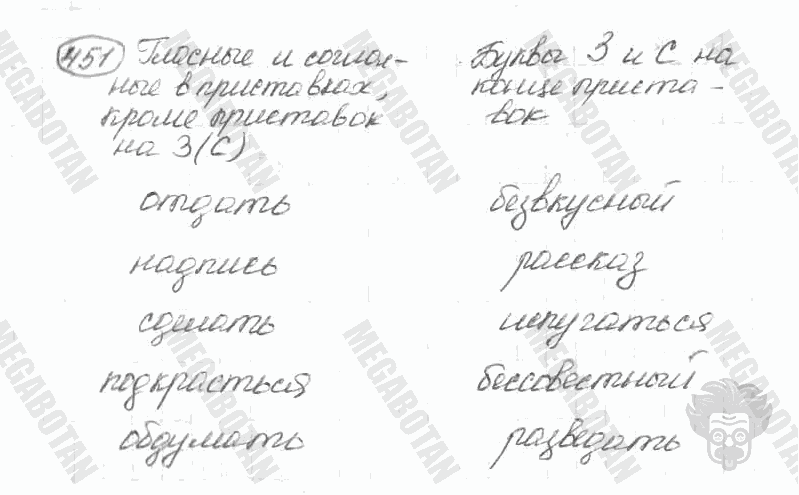 451 Гласные и соглас-
ные в приставках,
кроме приставок
на З(С)
отдать
надпись
сделать
подкрасться
обдумать
Буквы З и С на
конце приста-
вок
безвкусный
рассказ
испугаться
бессовестный
разведать
MEGABOTAN